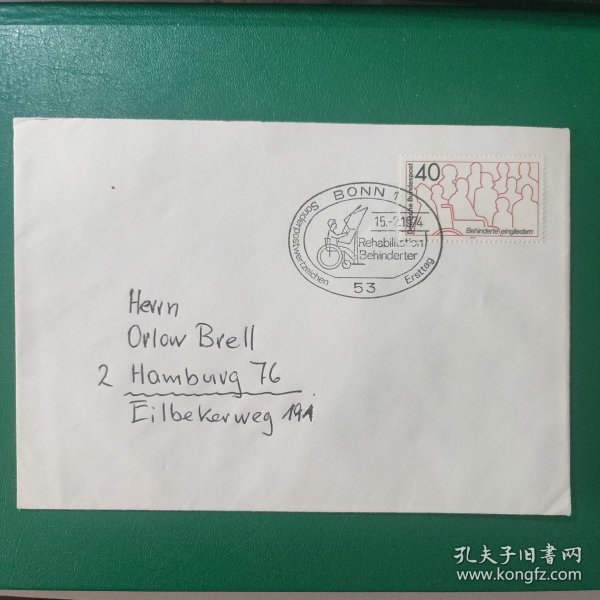 40
Deutsche Bundespost
Behinderte eingliedern
BONN 1
15.-2.1974
Sonderpostwertzeichen
Rehabilitation
Behinderter
Ersttag
53
Herrn
Orlow Brell
2 Hamburg 76
Eilbekerweg 19A
孔夫子旧书网
www.kongfz.com